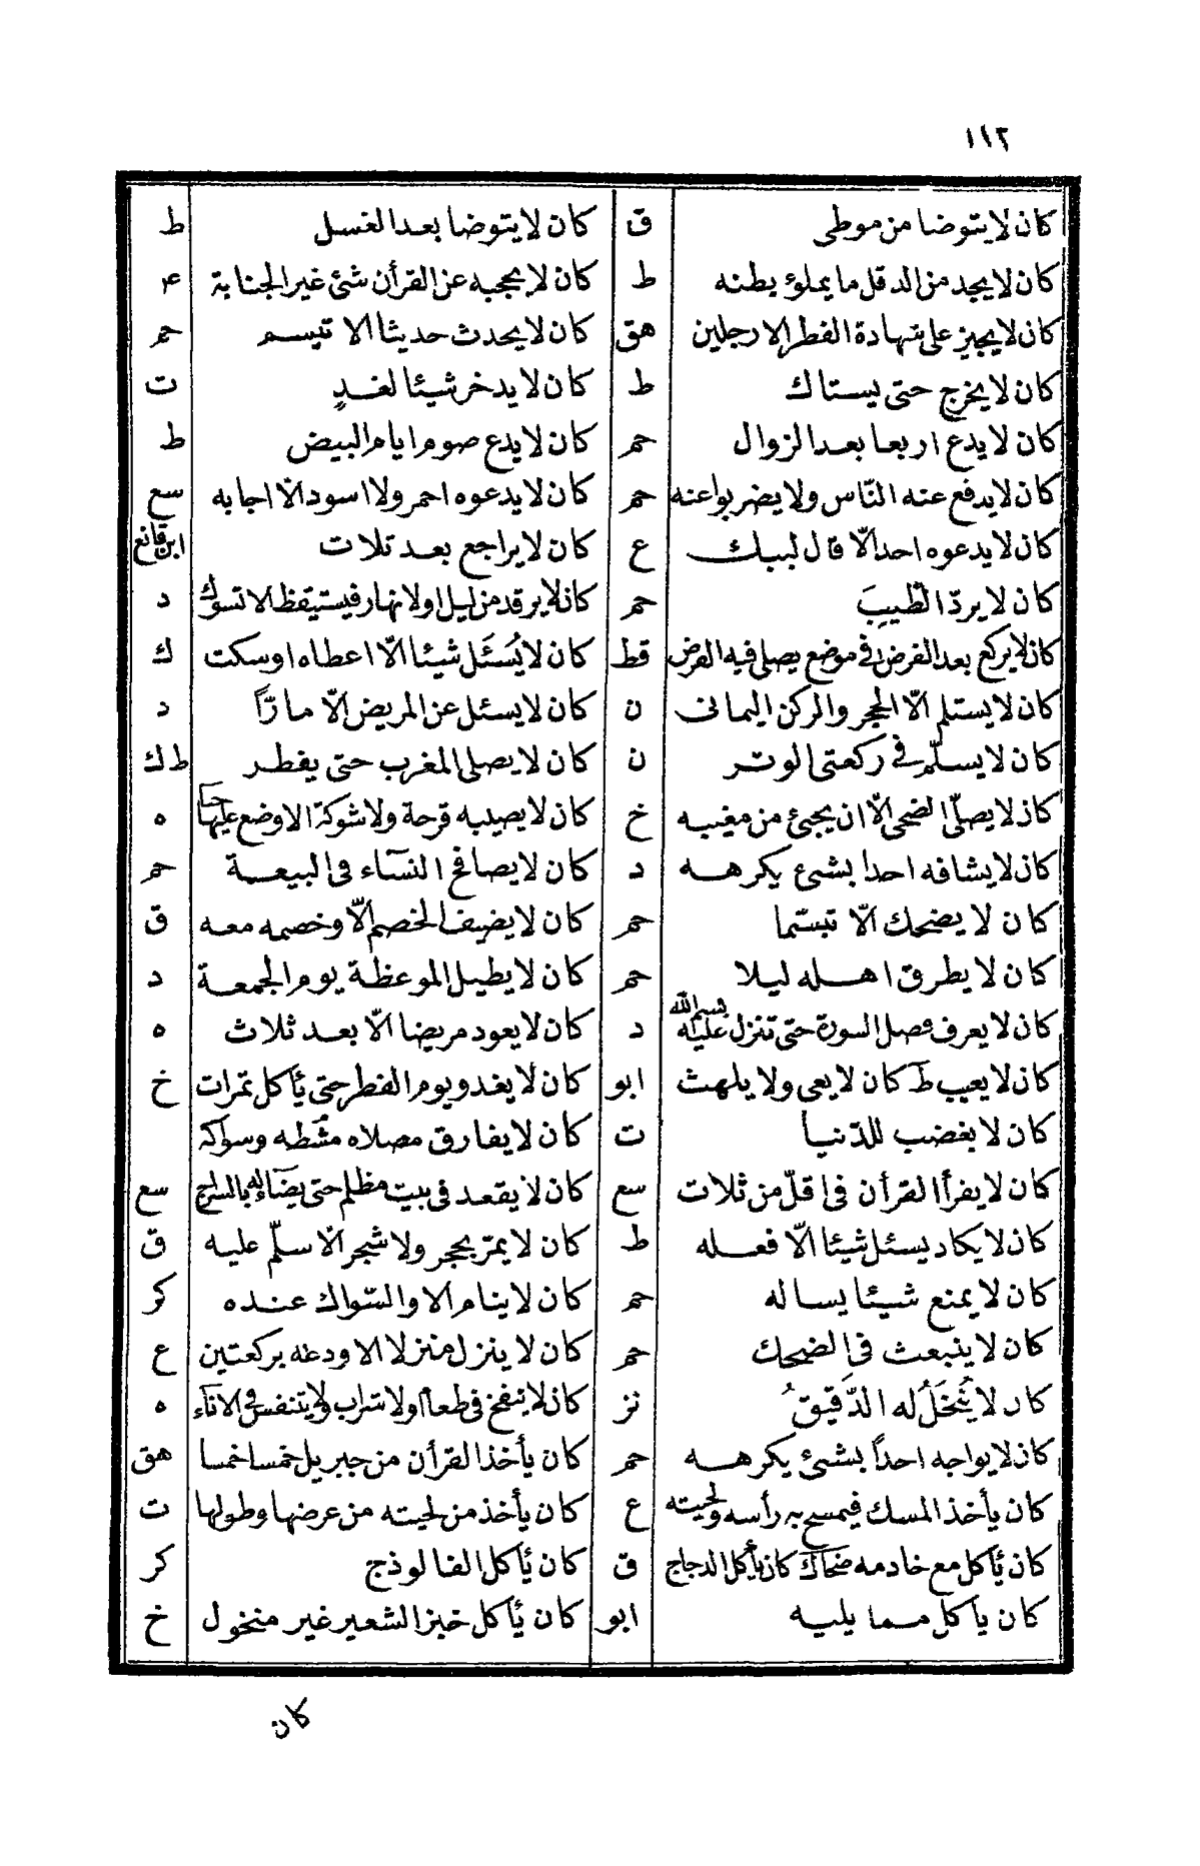 ١١٢
كان لا يتوضا من موطى ق كان لا يتوضا بعد الغسل ط
كان لا يجد من الدقل ما يملؤ بطنه ط كان لا يحجبه عن القرأن شئ غير الجنابة ۴
كان لا يجيز على شهادة الفطر إلا رجلين هق كان لا يحدث حديثا الا تبسم حم
كان لا يخرج حتى يستاك ط كان لا يدخر شيئا لغدٍ ت
كان لا يدع اربعا بعد الزوال حم كان لا يدع صوم ايام البيض ط
كان لا يدفع عنه النّاس ولا يضربوا عنه حم كان لا يدعوه احمر ولا اسود الّا اجابه سع
كان لا يدعوه احد الّا قال لبيك ع كان لا يراجع بعد ثلاث ابن قانع
كان لا يردّ الطّيبَ حم كان لا يرقد من ليل او لا نهار فيستيقظ الا تسوك د
كان لا يركع بعد الفرض في موضع يصلى فيه الفرض قط كان لا يُسئَل شيئا الّا اعطاه او سكت ك
كان لا يستلم الّا الحجر والركن اليمانى ن كان لا يسئل عن المريض الّا مارًّا د
كان لا يسلّم في ركعتى الوتر ن كان لا يصلى المغرب حتى يفطر ط ك
كان لا يصلّى الضحى الّا ان يجئ من مغيبه خ كان لا يصيبه قرحة ولا شوكة الا وضع عليها حنا ه
كان لا يشافه احدا بشئ يكرهه د كان لا يصافح النسآء فى البيعة حم
كان لا يضحك الّا تبسّما حم كان لا يضيف الخصم الّا وخصمه معه ق
كان لا يطرق اهله ليلا حم كان لا يطيل الموعظة يوم الجمعة د
كان لا يعرف فصل السورة حتى تنزل عليه بسم الله د كان لا يعود مريضا الّا بعد ثلاث ه
كان لا يعيب ط كان لا يعى ولا يلهث ابو كان لا يغدو يوم الفطر حتى يأكل تمرات خ
كان لا يغضب للدّنيا ت كان لا يفارق مصلاه مشطه وسواكه
كان لا يقرأ القرأن فى اقلّ من ثلاث سع كان لا يقعد فى بيت مظلم حتى يضآء له بالسراج سع
كان لا يكاد يسئل شيئا الّا فعله ط كان لا يمرّ بحجر ولا شجر الّا سلّم عليه ق
كان لا يمنع شيئا يساله حم كان لا ينام الا والسّواك عنده كر
كان لا ينبعث فى الضحك حم كان لا ينزل منزلا الا ودعه بركعتين ع
كان لا يُنخَلُ له الدّقيقُ نز كان لا ينفخ فى طعام ولا شراب ولا يتنفس فى الانآء ه
كان لا يواجه احداً بشئ يكرهه حم كان يأخذ القرأن من جبريل خمسا خمسا هق
كان يأخذ المسك فيمسح به رأسه ولحيته ع كان يأخذ من لحيته من عرضها وطولها ت
كان يأكل مع خادمه ضحاك كان يأكل الدجاج ق كان يأكل الفالوذج كر
كان يأكل مما يليه ابو كان يأكل خبز الشعير غير منخول خ
كان